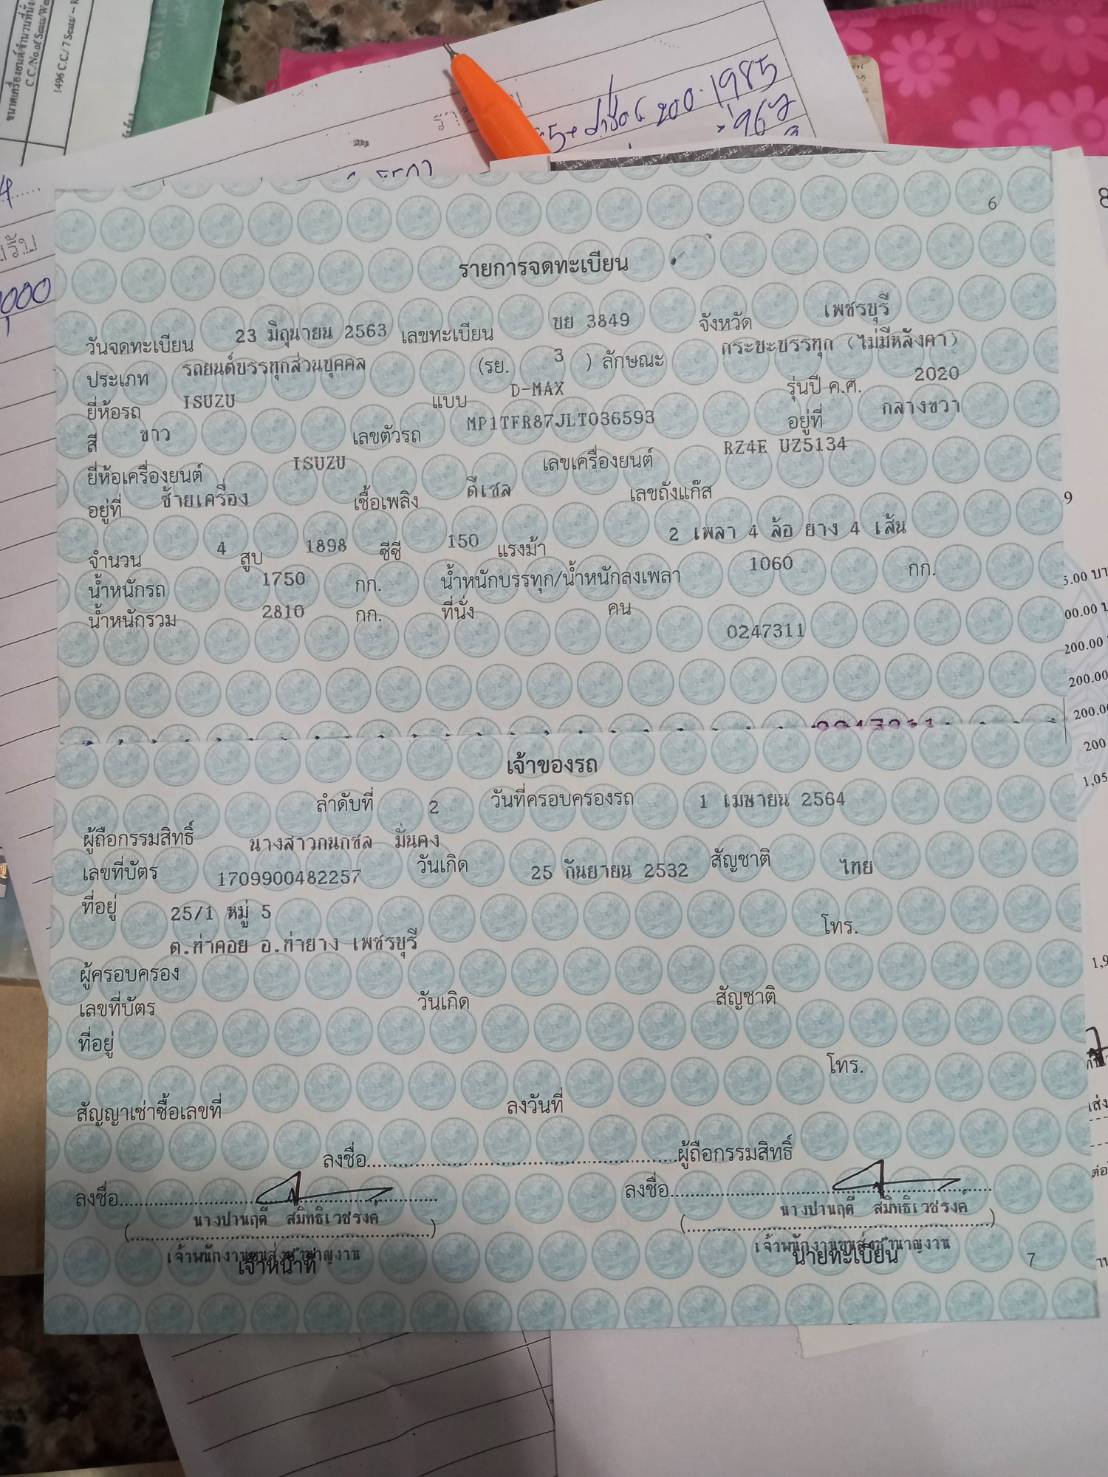 ขนาดเครื่องยนต์/จำนวนที่นั่ง
1496 C.C/7 Seat
200.1985
6
รายการจดทะเบียน
วันจดทะเบียน 23 มิถุนายน 2563 เลขทะเบียน ขย 3849 จังหวัด เพชรบุรี
ประเภท รถยนต์บรรทุกส่วนบุคคล (รย. 3 ) ลักษณะ กระบะบรรทุก (ไม่มีหลังคา)
ยี่ห้อรถ ISUZU แบบ D-MAX รุ่นปี ค.ศ. 2020
สี ขาว เลขตัวรถ MP1TFR87JLT036593 อยู่ที่ กลางขวา
ยี่ห้อเครื่องยนต์ ISUZU เลขเครื่องยนต์ RZ4E UZ5134
อยู่ที่ ซ้ายเครื่อง เชื้อเพลิง ดีเซล เลขถังแก๊ส
จำนวน 4 สูบ 1898 ซีซี 150 แรงม้า 2 เพลา 4 ล้อ ยาง 4 เส้น
น้ำหนักรถ 1750 กก. น้ำหนักบรรทุก/น้ำหนักลงเพลา 1060 กก.
น้ำหนักรวม 2810 กก. ที่นั่ง คน
0247311
เจ้าของรถ
ลำดับที่ 2 วันที่ครอบครองรถ 1 เมษายน 2564
ผู้ถือกรรมสิทธิ์ นางสาวกนกชล มั่นคง
เลขที่บัตร 1709900482257 วันเกิด 25 กันยายน 2532 สัญชาติ ไทย
ที่อยู่ 25/1 หมู่ 5
โทร.
ต.ท่าคอย อ.ท่ายาง เพชรบุรี
ผู้ครอบครอง
เลขที่บัตร วันเกิด สัญชาติ
ที่อยู่
โทร.
สัญญาเช่าซื้อเลขที่ ลงวันที่
ลงชื่อ ผู้ถือกรรมสิทธิ์
ลงชื่อ ลงชื่อ
นางปานฤดี สมิทธิเวชรงค์ นางปานฤดี สมิทธิเวชรงค์
เจ้าพนักงานขนส่งชำนาญงาน เจ้าพนักงานขนส่งชำนาญงาน
เจ้าหน้าที่ นายทะเบียน 7